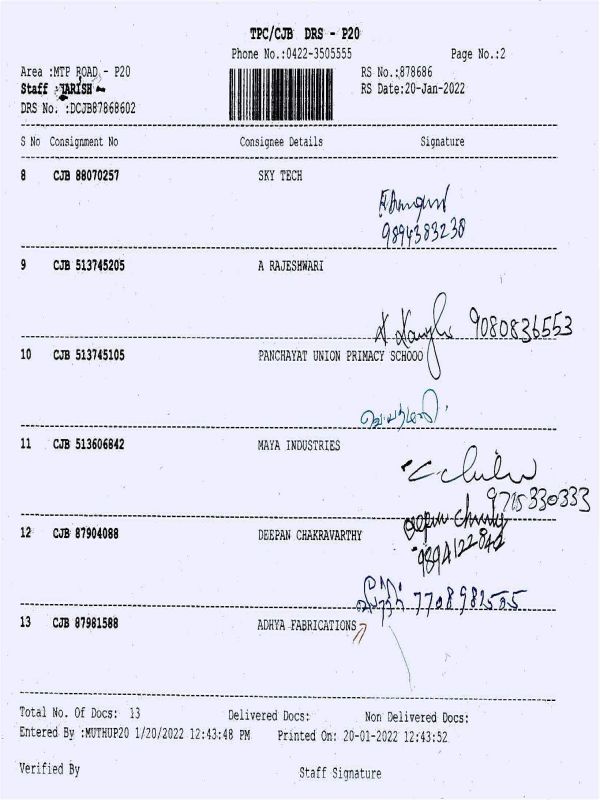 TPC/CJB DRS - P20
Phone No.:0422-3505555 Page No.:2
Area :MTP ROAD - P20 RS No.:878686
Staff : RS Date:20-Jan-2022
DRS No. :DCJB87868602
S No Consignment No Consignee Details Signature
8 CJB 88070257 SKY TECH
9894383238
9 CJB 513745205 A RAJESHWARI
9080836553
10 CJB 513745105 PANCHAYAT UNION PRIMACY SCHOOO
11 CJB 513606842 MAYA INDUSTRIES
9715330333
12 CJB 87904088 DEEPAN CHAKRAVARTHY
9894122842
7708982505
13 CJB 87981588 ADHYA FABRICATIONS
Total No. Of Docs: 13 Delivered Docs: Non Delivered Docs:
Entered By :MUTHUP20 1/20/2022 12:43:48 PM Printed On: 20-01-2022 12:43:52
Verified By Staff Signature